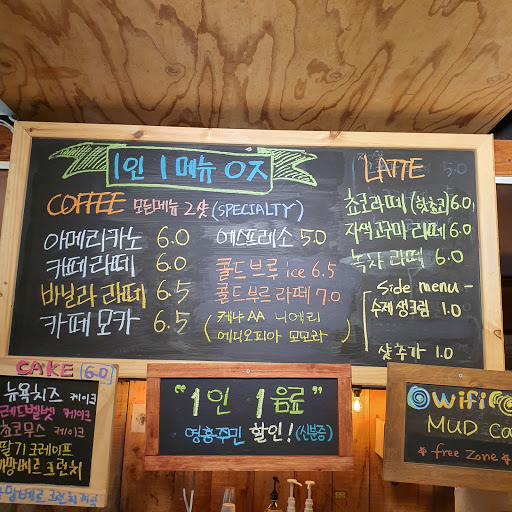 1인 1메뉴
COFFEE 모든메뉴 2샷 (SPECIALTY)
아메리카노 6.0
카페라떼 6.0
바닐라 라떼 6.5
카페 모카 6.5
에스프레소 5.0
콜드브루 ice 6.5
콜드브루 라떼 7.0
(케냐AA 니에리
에디오피아 모모라)
LATTE 5.0
쵸코라떼 (핫쵸코) 6.0
자색고구마 라떼 6.0
녹차 라떼 6.0
Side menu -
수제 생크림 1.0
샷 추가 1.0
CAKE (6.0)
뉴욕치즈 케이크
레드벨벳 케이크
쵸코무스 케이크
딸기 크레이프
"1인 1음료"
영흥주민 할인! (신분증)
wifi
MUD
free zone